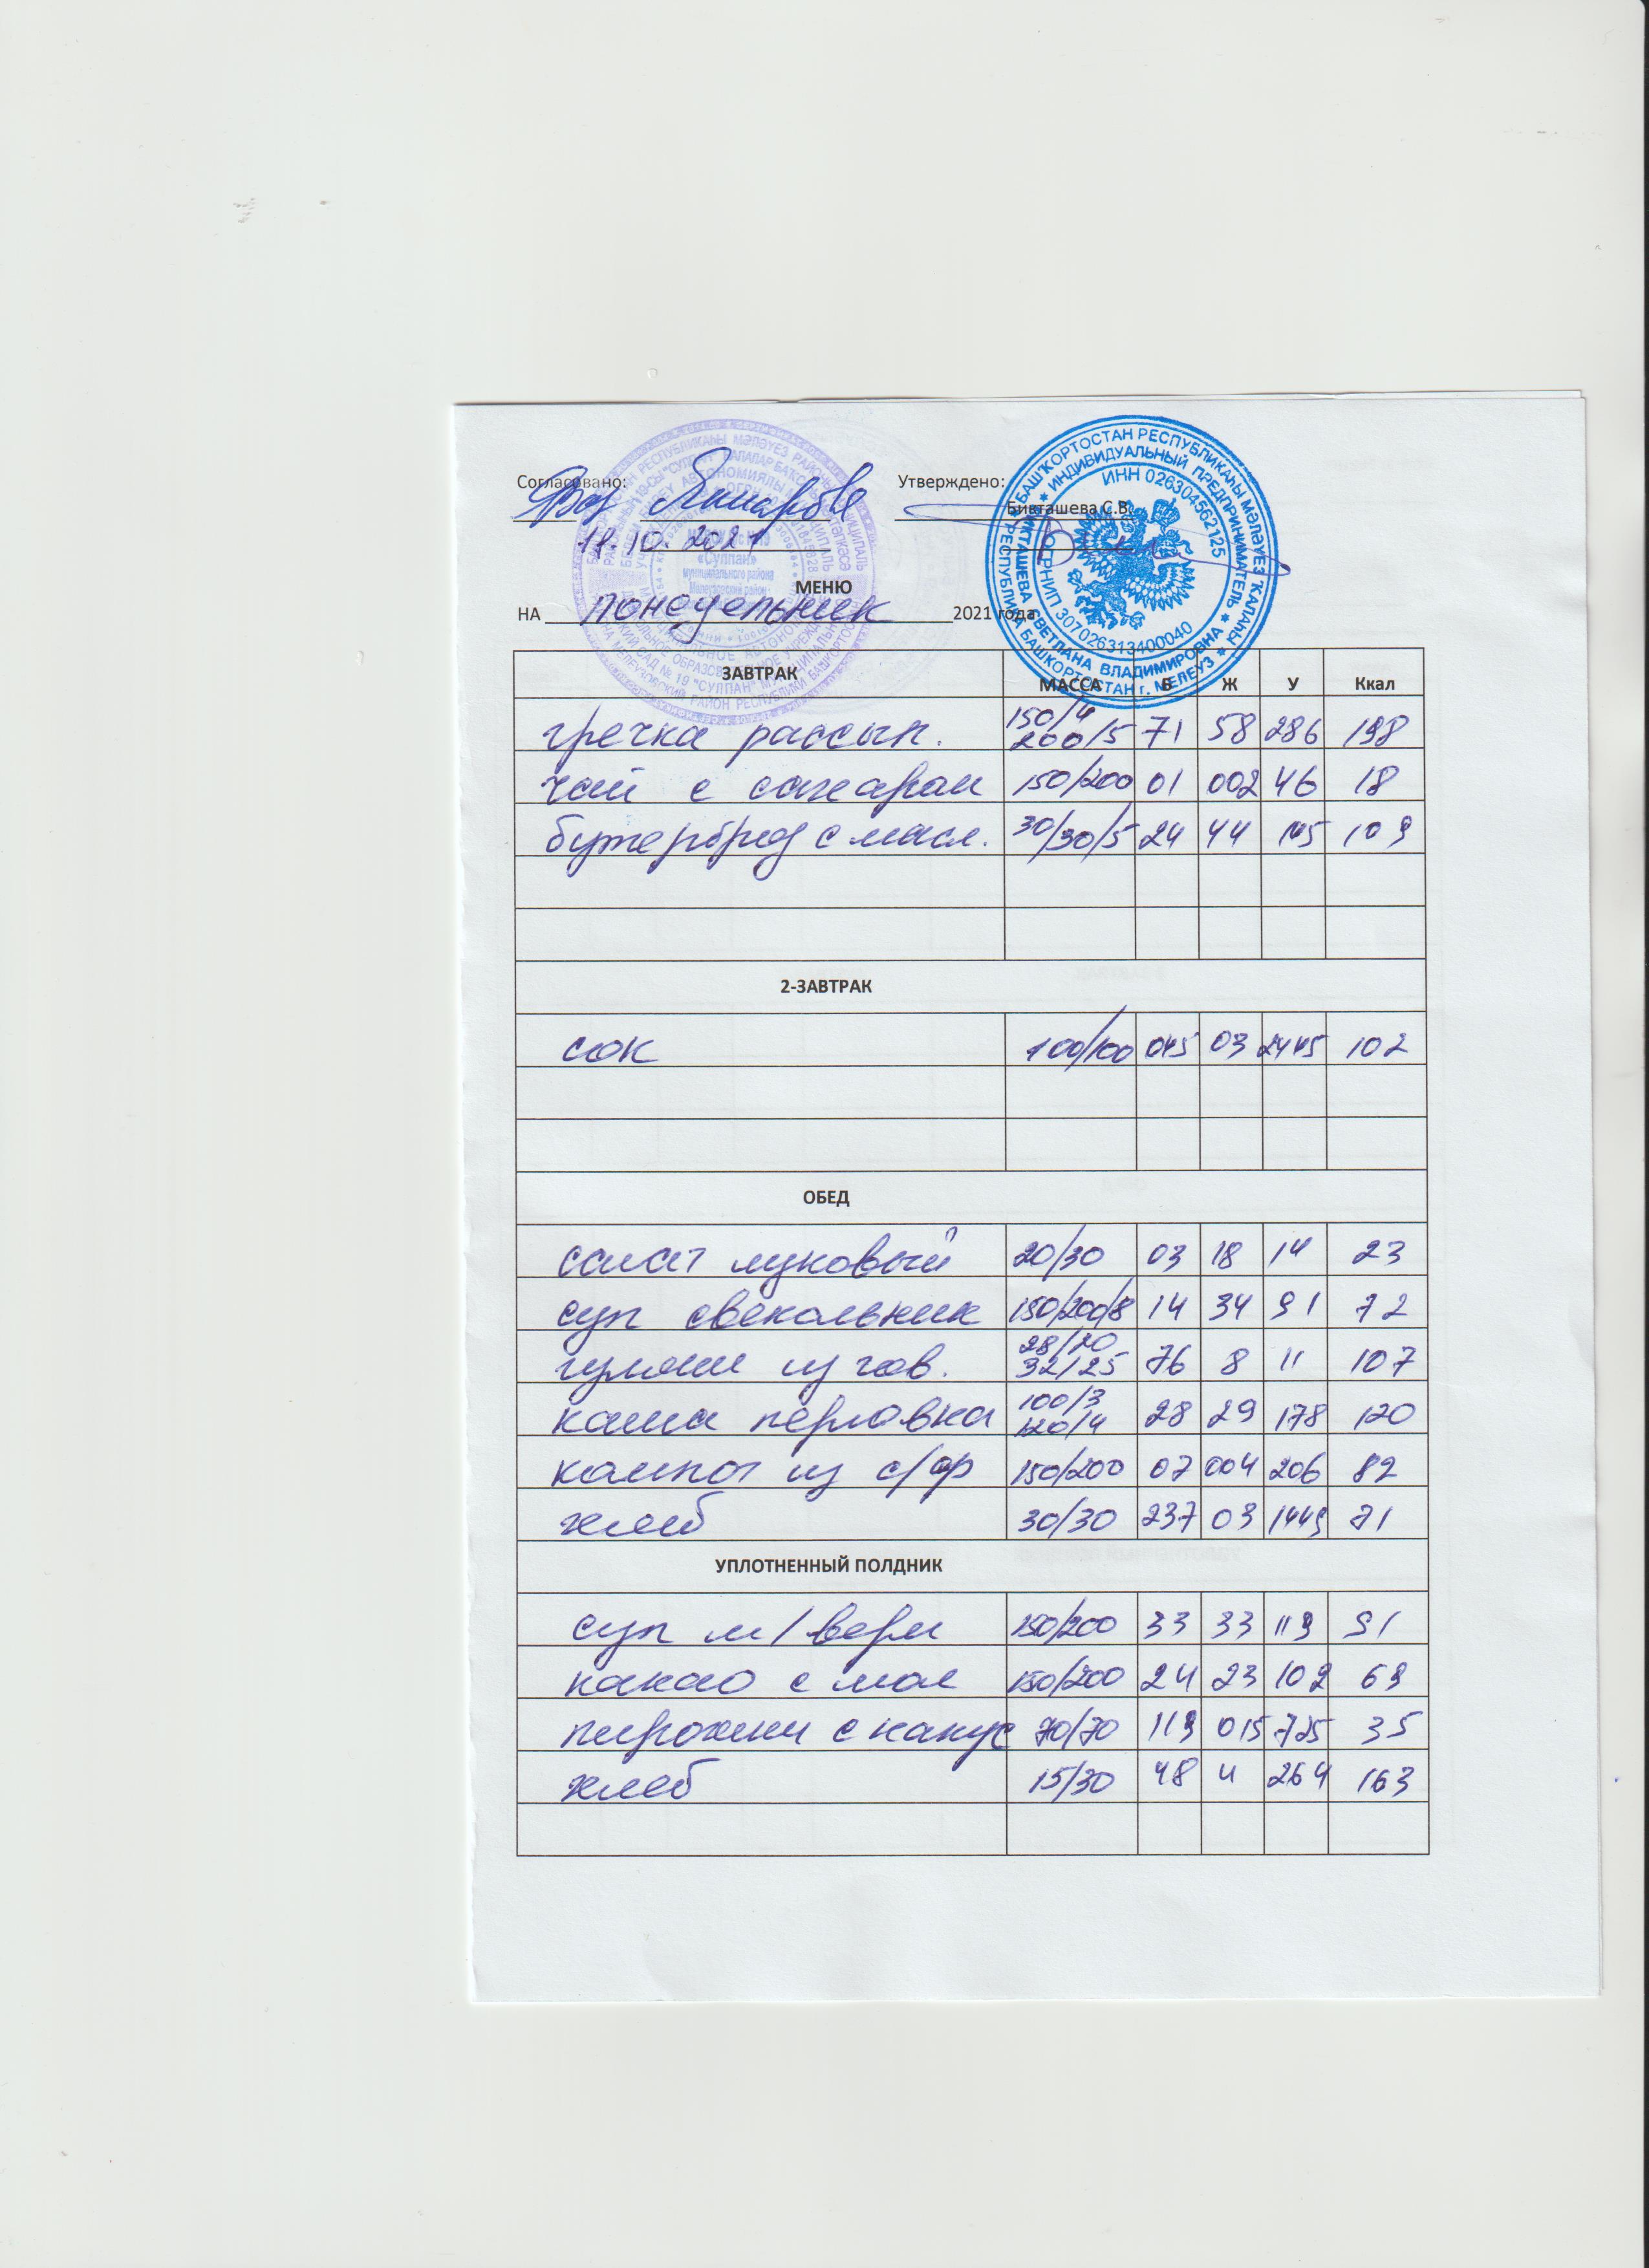 Согласовано: Утверждено:
Бикташева С.В.
10. 2021
МЕНЮ
НА понедельник 2021 года
ЗАВТРАК МАССА Б Ж У Ккал
гречка рассып. 150/4 200/5 71 58 286 198
чай с сахаром 150/200 01 002 46 18
бутерброд с масл. 30/30/5 24 44 145 109
2-ЗАВТРАК
сок 100/100 045 03 2445 102
ОБЕД
салат луковый 20/30 03 18 14 23
суп свекольник 150/200/8 14 34 91 72
гуляш из гов. 28/20 32/25 76 8 11 107
каша перловка 100/3 120/4 28 29 178 120
компот из с/фр 150/200 07 004 206 82
хлеб 30/30 237 03 1449 71
УПЛОТНЕННЫЙ ПОЛДНИК
суп м/верм 150/200 33 33 119 91
какао с мол 150/200 24 23 102 69
пирожки с капус 70/70 119 015 725 35
хлеб 15/30 48 4 264 163
БАШҠОРТОСТАН РЕСПУБЛИКАҺЫ МӘЛӘҮЕЗ ҠАЛАҺЫ
РЕСПУБЛИКА БАШКОРТОСТАН г. МЕЛЕУЗ
ИНДИВИДУАЛЬНЫЙ ПРЕДПРИНИМАТЕЛЬ
БИКТАШЕВА СВЕТЛАНА ВЛАДИМИРОВНА
ИНН 026304562125
ОГРНИП 307026313400040
«Сулпан»
муниципального района
Мелеузовский район